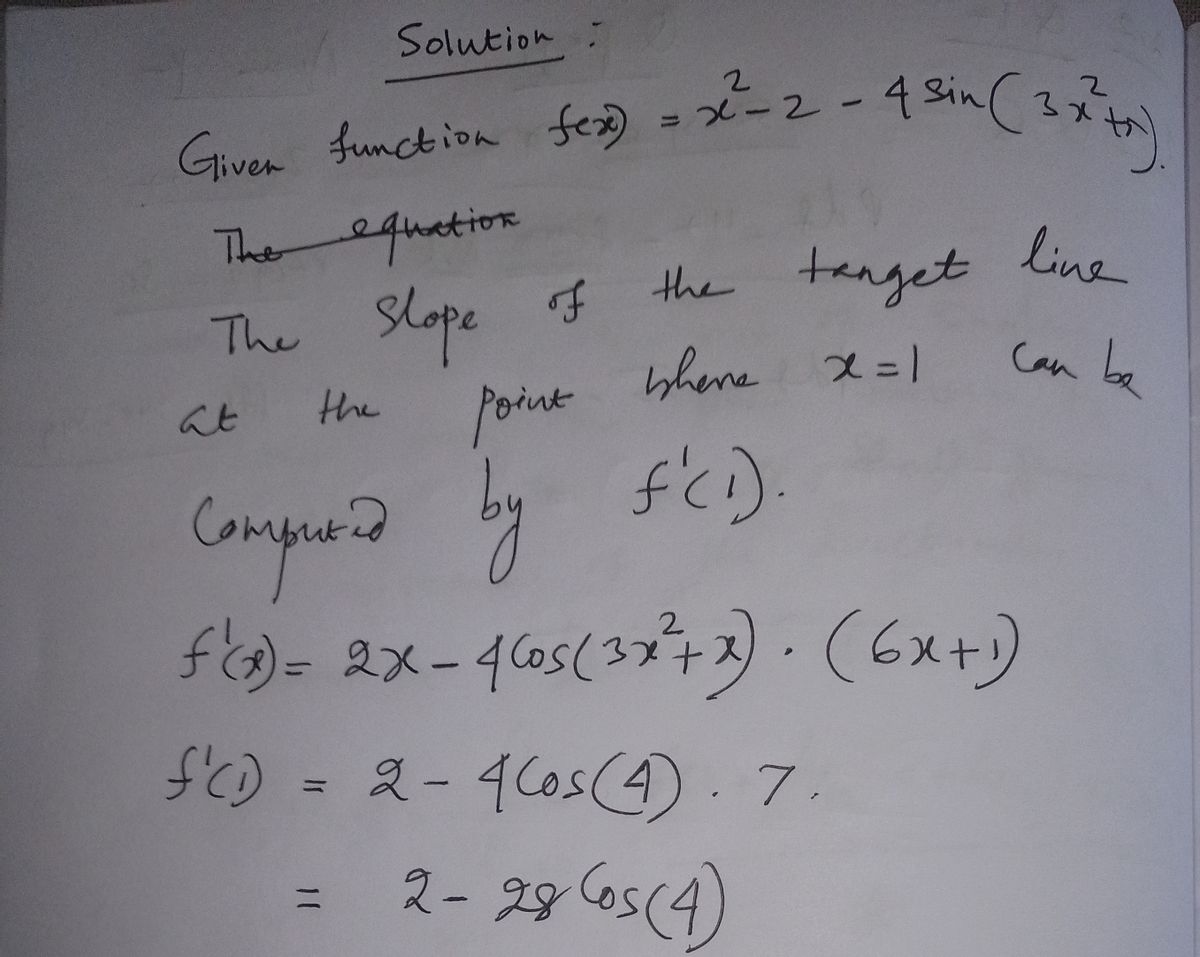 Solution :
Given function f(x) = x² - 2 - 4 Sin( 3x²+x).
The equation
The Slope of the tanget line
at the point where x = 1 Can be
Computed by f'(1).
f'(x) = 2x - 4Cos(3x²+x) . (6x+1)
f'(1) = 2 - 4Cos(4) . 7.
= 2 - 28 Cos(4)